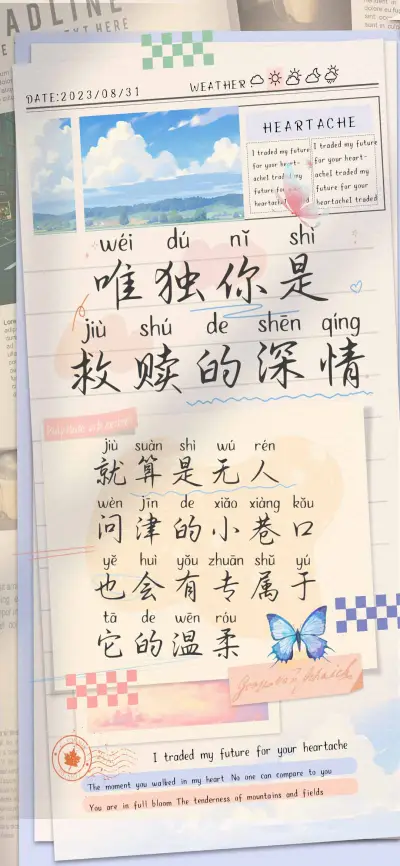 ADLINE
TEXT HERE
DATE:2023/08/31
WEATHER
HEARTACHE
I traded my future
for your heart-
acheI traded my
future for your
heartacheI traded
I traded my future
for your heart-
acheI traded my
future for your
heartacheI traded
wéi dú nǐ shì
唯独你是
jiù shú de shēn qíng
救赎的深情
jiù suàn shì wú rén
就算是无人
wèn jīn de xiǎo xiàng kǒu
问津的小巷口
yě huì yǒu zhuān shǔ yú
也会有专属于
tā de wēn róu
它的温柔
I traded my future for your heartache
The moment you walked in my heart No one can compare to you
You are in full bloom The tenderness of mountains and fields